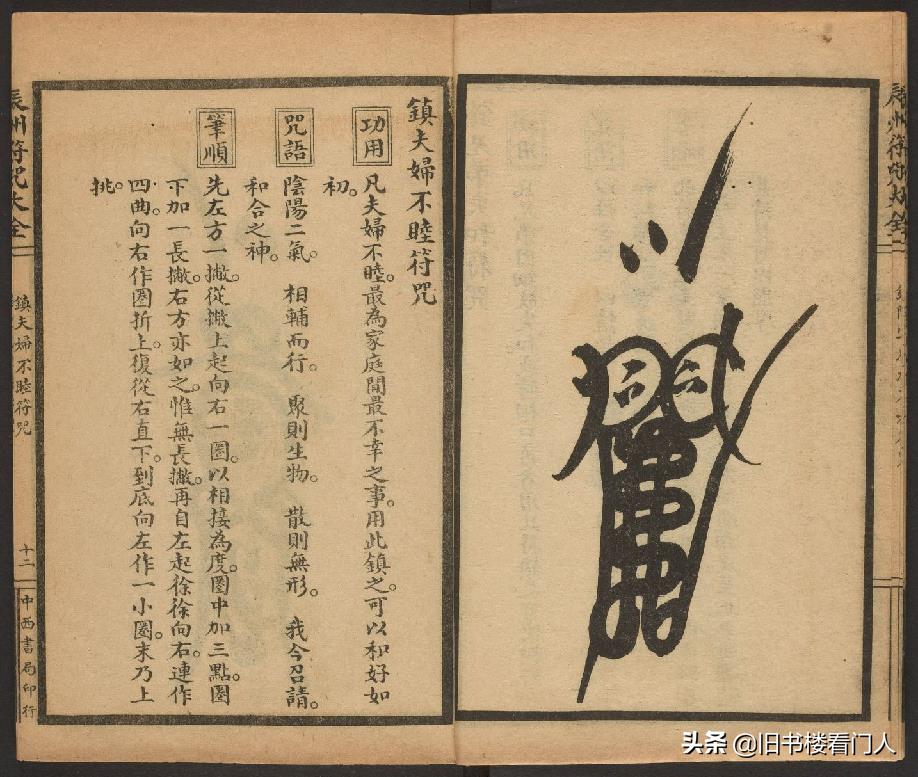 鎮夫婦不睦符咒
功用
凡夫婦不睦。最為家庭間最不幸之事。用此鎮之。可以和好如
初。
咒語
陰陽二氣。 相輔而行。 聚則生物。 散則無形。 我今召請。
和合之神。
筆順
先左方一撇。從撇上起向右一圈。以相接為度。圈中加三點。圈
下加一長撇。右方亦如之。惟無長撇。再自左起徐徐向右。連作
四曲。向右作圈折上。復從右直下。到底向左作一小圈。末乃上
挑。
辰州符咒大全
鎮夫婦不睦符咒
十二
中西書局印行
头条 @旧书楼看门人